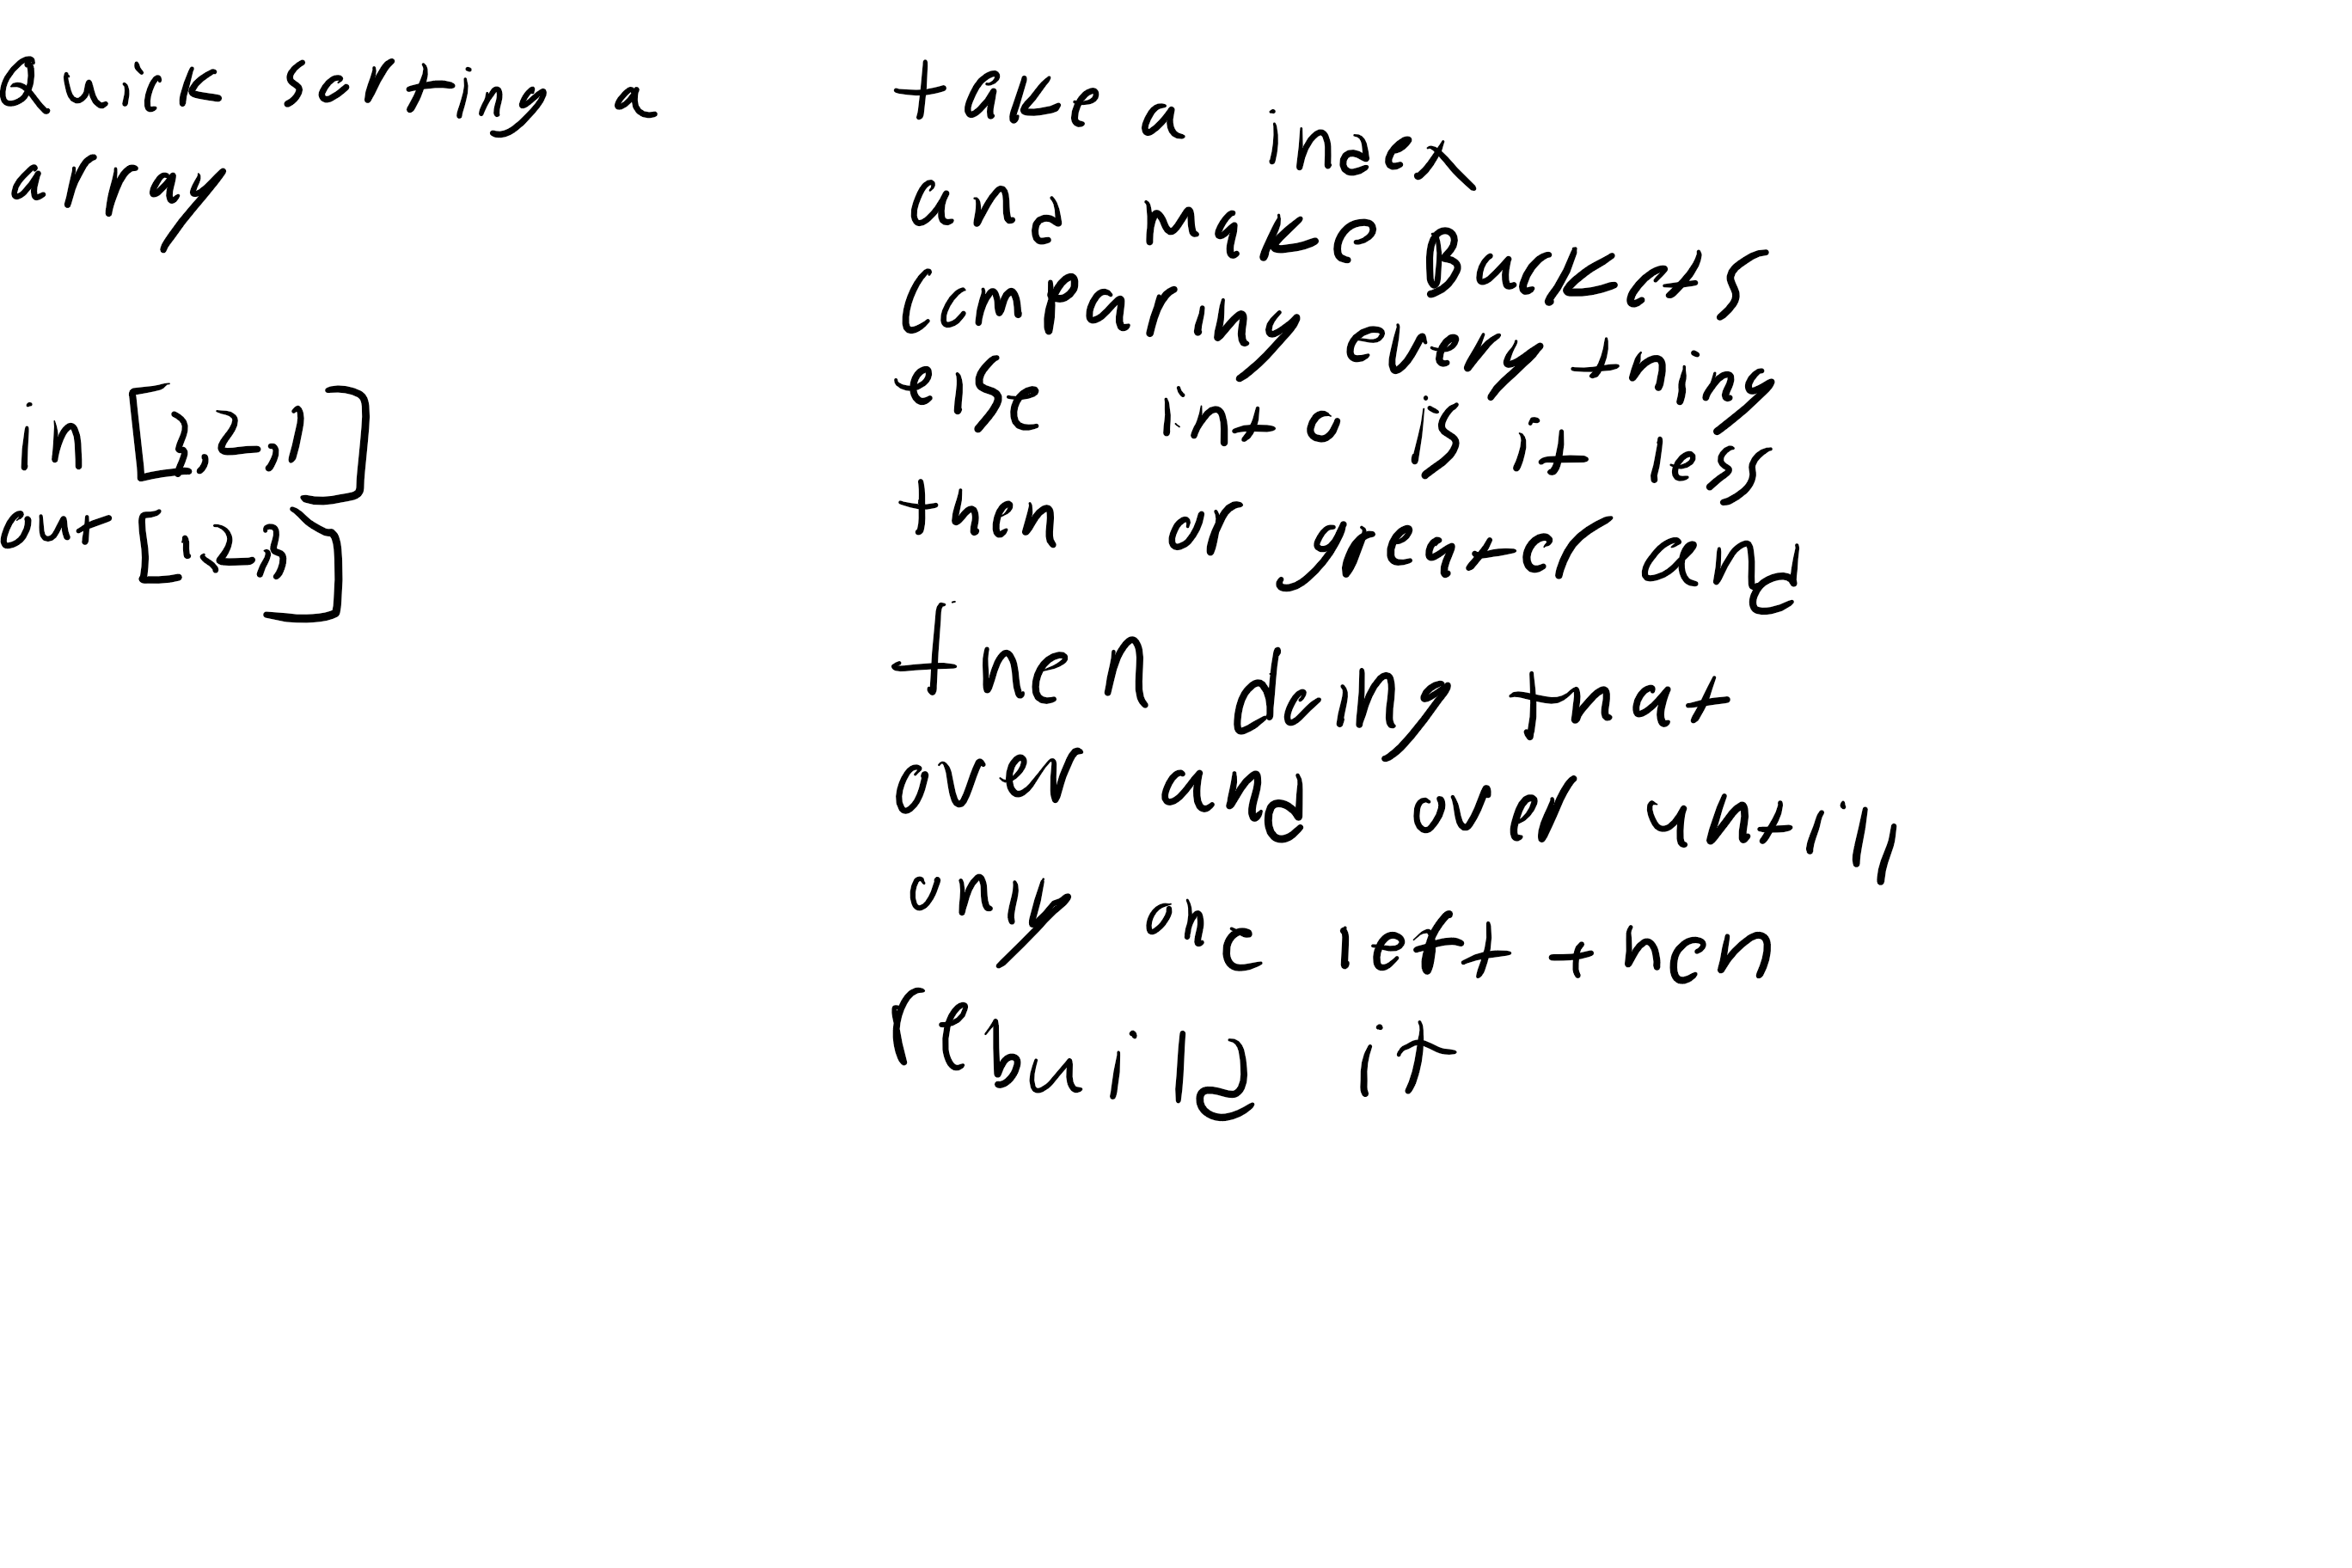 Quick sorting a
array
in [3,2,1]
out [1,2,3]
take a index
and make Buckets
Comparing every thing
else into is it less
then or greater and
then doing that
over and over untill
only one left then
rebuild it